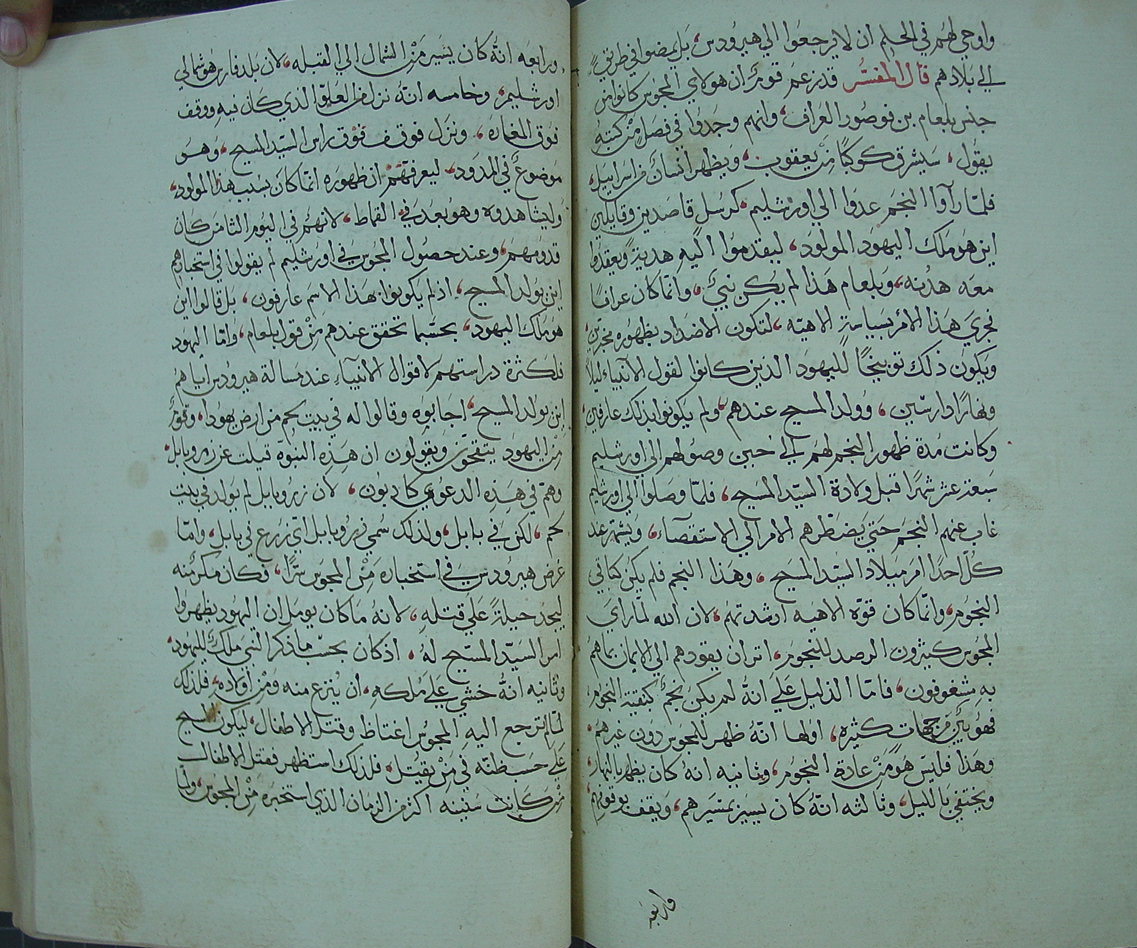 واوحي لهم في الحلم ان لا يرجعوا الي هيرودس، بل يمضوا في طريق
الي بلادهم قال المفسر قد زعم قوم ان هولاي المجوس كانوا من
جنس بلعام بن فوصور العراف، وانهم وجدوا في فصل من كتبه
يقول، سيشرق كوكبا من يعقوب، ويظهر انسان من اسرابيل،
فلما رآوا النجم عدوا الي اورشليم، كرسل قاصدين وقايلين
اين هو ملك اليهود المولود، ليقدموا اليه هدية ويعقدوا
معه هدنه، وبلعام هذا لم يكن نبي، وانما كان عرافا
فجري هذا الامر بسياسة الاهيه، لتكون الاضداد بظهوره مخبرين
ويكون ذلك توبيخا لليهود الذين كانوا لقول الانبياء ليلا
ونهارا دارسين، وولد المسيح عندهم، ولم يكونوا بذلك عارفين،
وكانت مدة ظهور النجم لهم الي حين وصولهم الي اورشليم
سبعة عشر شهرا قبل ولادة السيد المسيح، فلما وصلوا الي اورشليم
غاب عنهم النجم حتي يضطرهم الامر الي الاستقصآء، ويشتهر عند
كل احد امر ميلاد السيد المسيح، وهذا النجم فلم يكن كباقي
النجوم، وانما كان قوة الاهيه ارشدتهم، لان الله لما راي
المجوس كثيرون الرصد للنجوم، اثر ان يقودهم الي الايمان بما هم
به شغوفون، فاما الدليل علي انه لم يكن نجم كبقية النجوم
فهو باين من جهات كثيره، اولها انه ظهر للمجوس دون غيرهم،
وهذا فليس هو من عادة النجوم، وثانيه انه كان يظهر بالنهار
ويختفي بالليل، وثالثه انه كان يسير بمسيرهم، ويقف بوقوفهم
ورابعه
ورابعه انه كان يسير من الشمال الي القبله، لان بلد فارس هو شمالي
اورشليم، وخامسه انه نزل من العلو الذي كان فيه ووقف
فوق المغاره، ونزل فوقف فوق راس السيد المسيح، وهو
موضوع في المدود، ليعرفهم ان ظهوره انما كان بسبب هذا المولود،
وانهم شاهدوه وهو بعد في القماط، لانهم في اليوم الثامن كان
قدومهم، وعند حصول المجوس في اورشليم لم يقولوا في استخبارهم
اين يولد المسيح، اذ لم يكونوا بهذا الاسم عارفون، بل قالوا اين
هو ملك اليهود، بحسبما تحقق عندهم من قول بلعام، واما اليهود
فلكثرة دراستهم لاقوال الانبياء عند مسالة هيرودس اياهم
اين يولد المسيح، اجابوه وقالوا له في بيت لحم من ارض يهودا، وقوم
من اليهود يتفحون ويقولون ان هذه النبوه قيلت عن زروبابل،
وهم في هذه الدعوي كادبون، لان زروبابل لم يولد في بيت
لحم، لكن في بابل، ولذلك سمي زروبابل اي زرع في بابل، واما
غرض هيرودس في استخباره من المجوس سرا، فكان مكر منه
ليجد حيلة علي قتله، لانه ما كان يومل ان اليهود يظهروا
امر السيد المسيح له، اذ كان بحسب ما ذكر النبي ملك لليهود،
وثانيه انه خشي علي ملكه، ان ينزع منه ومن اولاده، فلذلك
لما لم ترجع اليه المجوس اغتاظ وقتل الاطفال، ليكون المسيح
علي حسب ظنه في من يقتل، فلذلك استظهر فقتل الاطفال
من كانت سنينه اكثر من الزمان الذي استخبره من المجوس، ولما